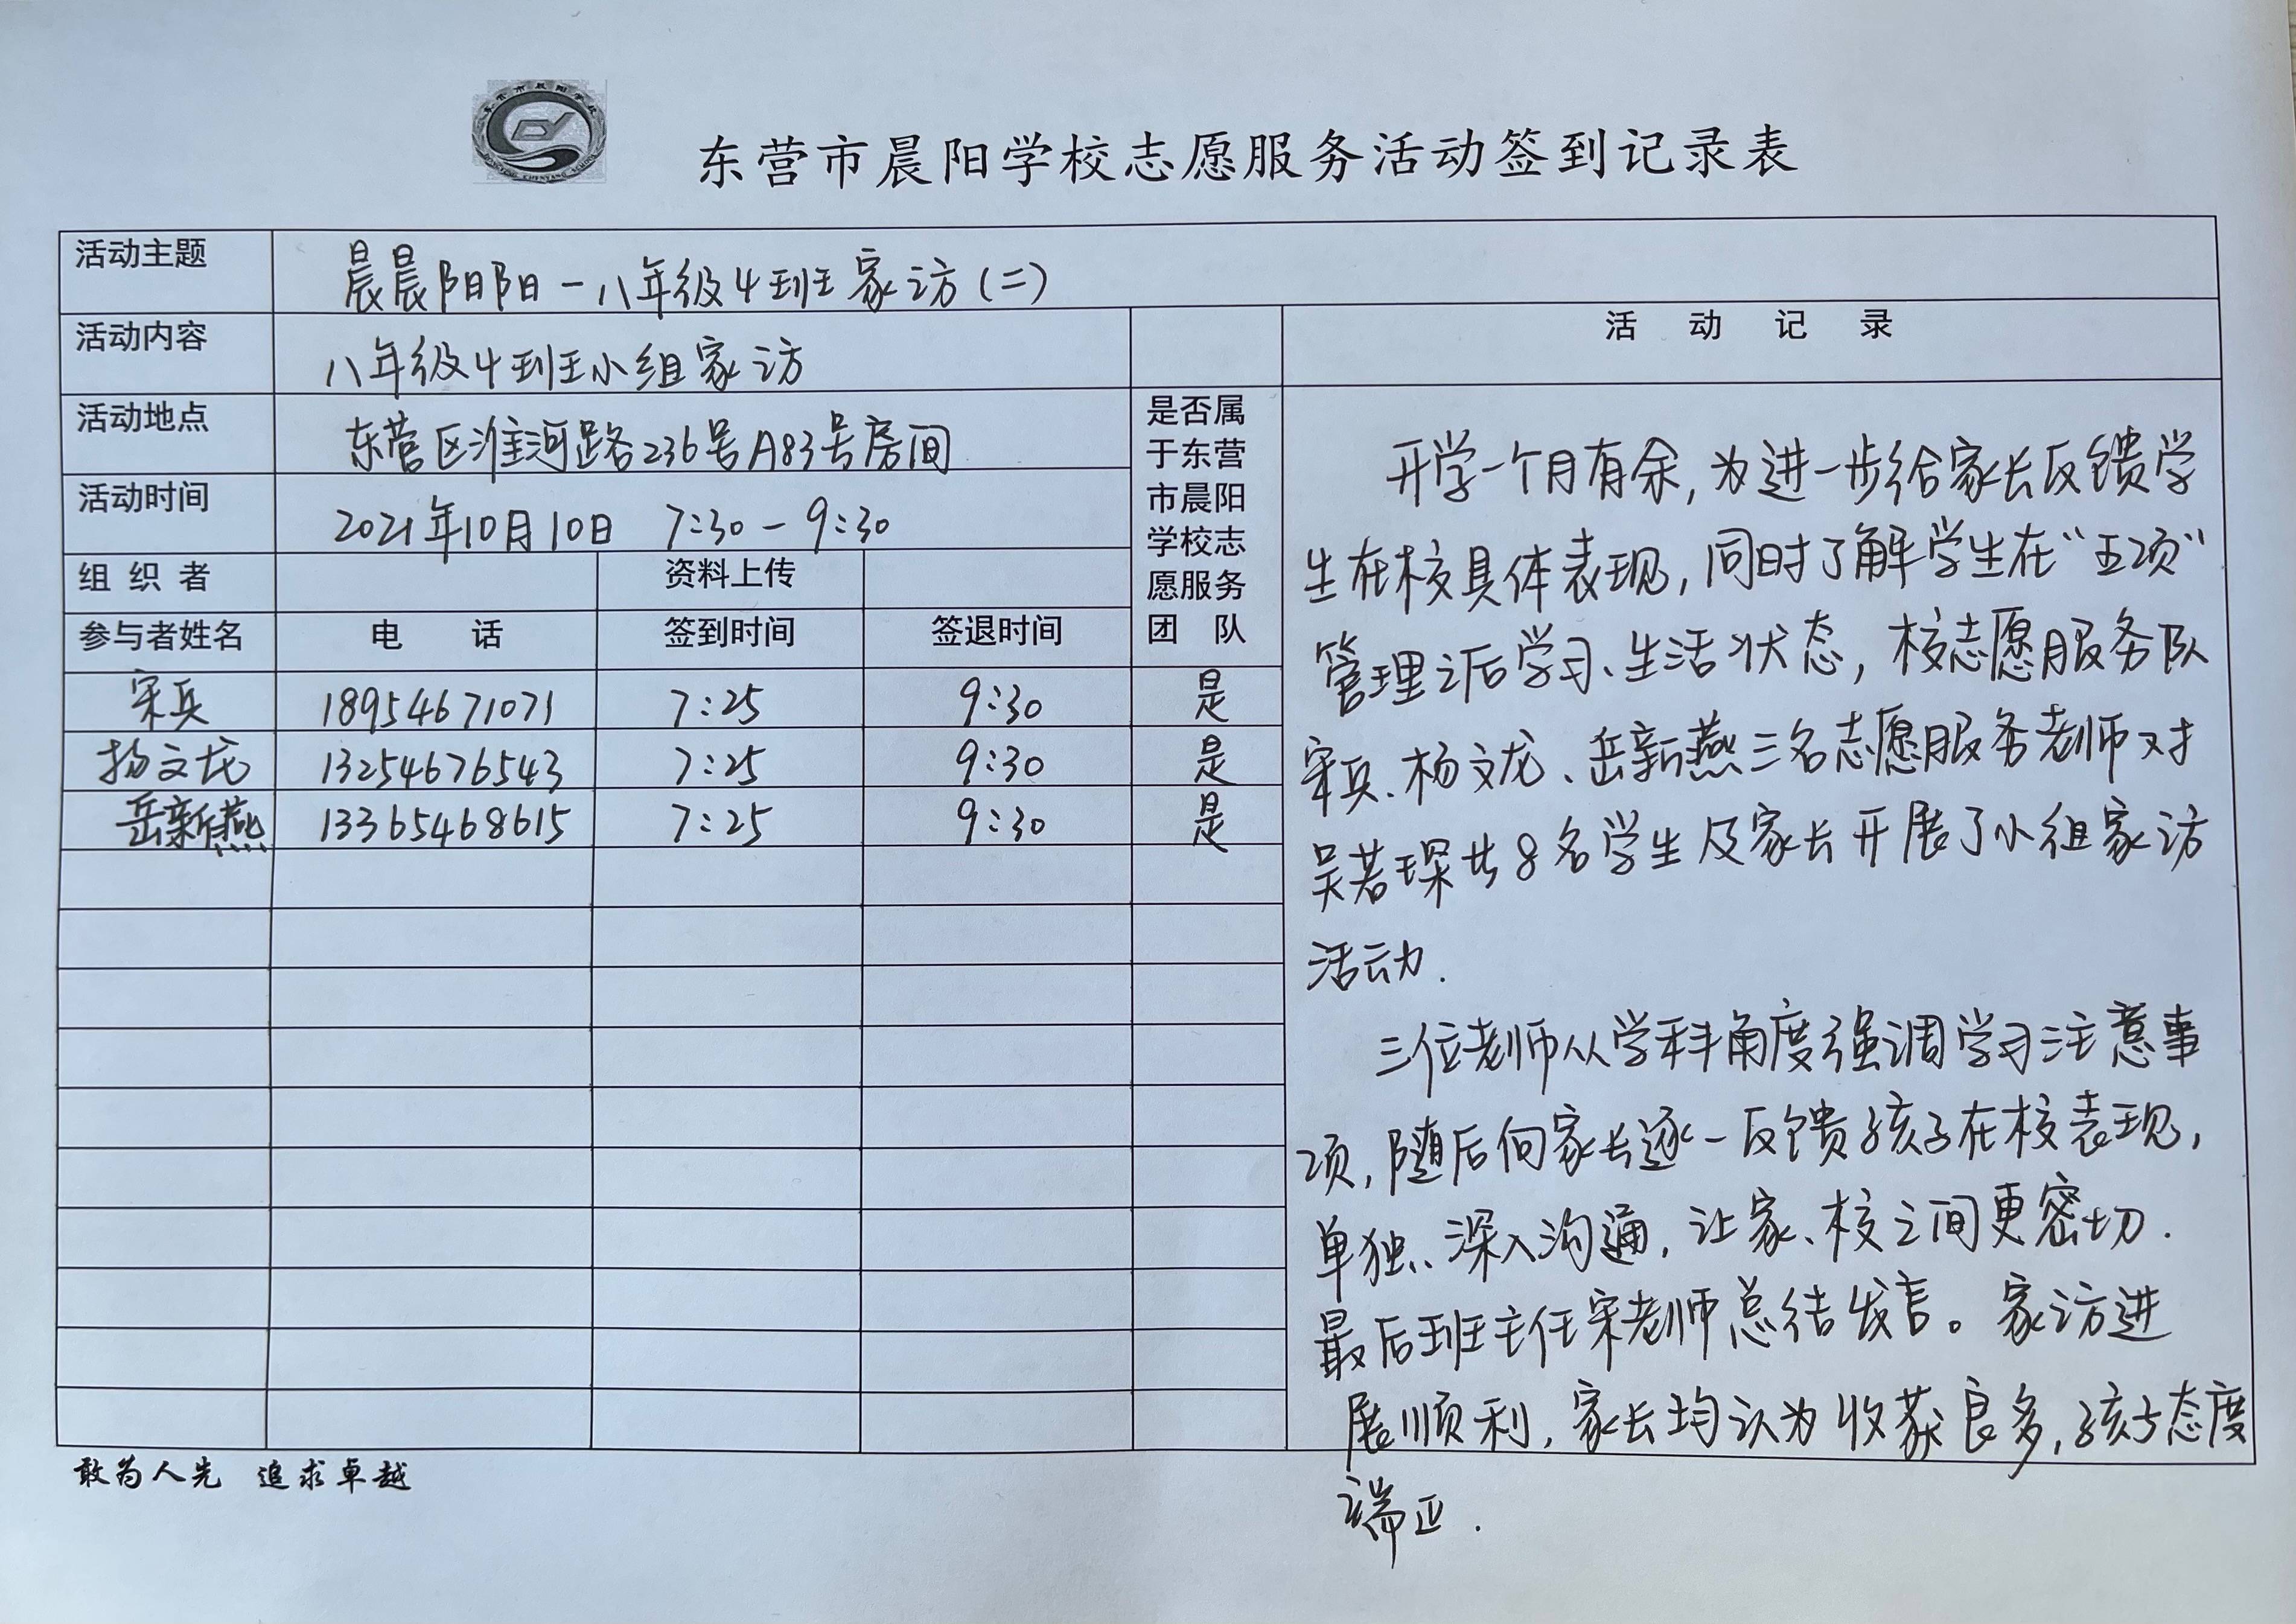 东营市晨阳学校志愿服务活动签到记录表
活动主题 晨晨阳阳-八年级4班家访(二)
活动内容 八年级4班小组家访
活动地点 东营区淮河路236号A83号房间
活动时间 2021年10月10日 7:30-9:30
组织者 资料上传
参与者姓名 电话 签到时间 签退时间
是否属
于东营
市晨阳
学校志
愿服务
团队
宋兵 18954671071 7:25 9:30 是
杨文龙 13254676543 7:25 9:30 是
岳新燕 13365468615 7:25 9:30 是
活动记录
开学一个月有余,为进一步给家长反馈学
生在校具体表现,同时了解学生在“五项”
管理之后学习、生活状态,校志愿服务队
宋兵、杨文龙、岳新燕三名志愿服务老师对
吴若琛共8名学生及家长开展了小组家访
活动.
三位老师从学科角度强调学习注意事
项,随后向家长逐一反馈孩子在校表现,
单独、深入沟通,让家、校之间更密切.
最后班主任宋老师总结发言。家访进
展顺利,家长均认为收获良多,孩子态度
端正.
敢为人先 追求卓越